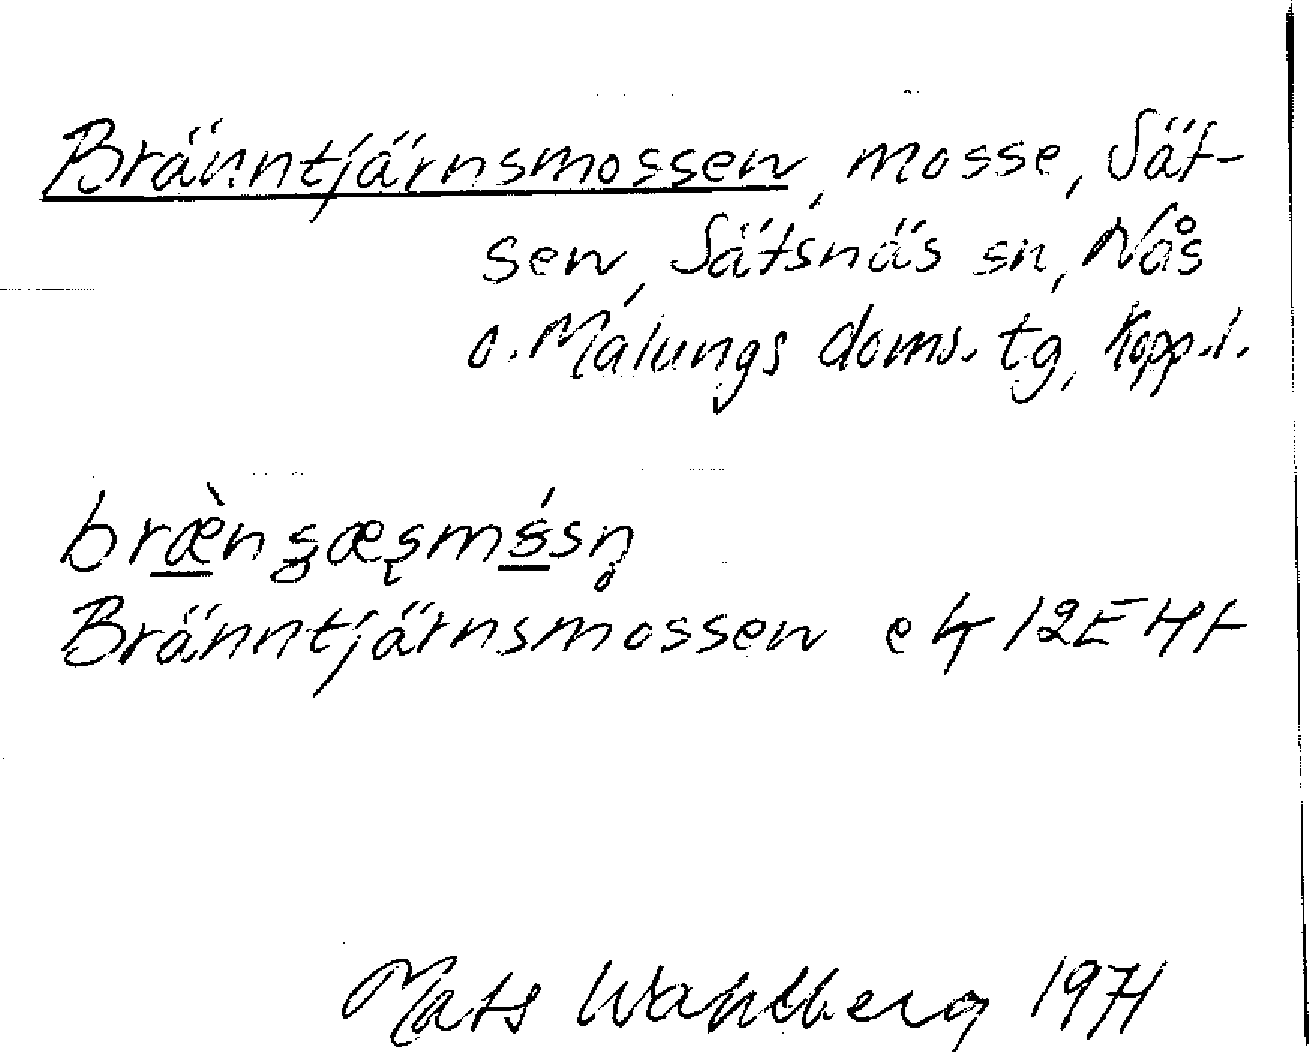 Bränntjärnsmossen, mosse, Sät-
sen, Sätsnäs sn, Nås
o. Malungs doms. tg, Kopp.l.
Bränntjärnsmossen ek 12E
Mats Wahlberg 1971